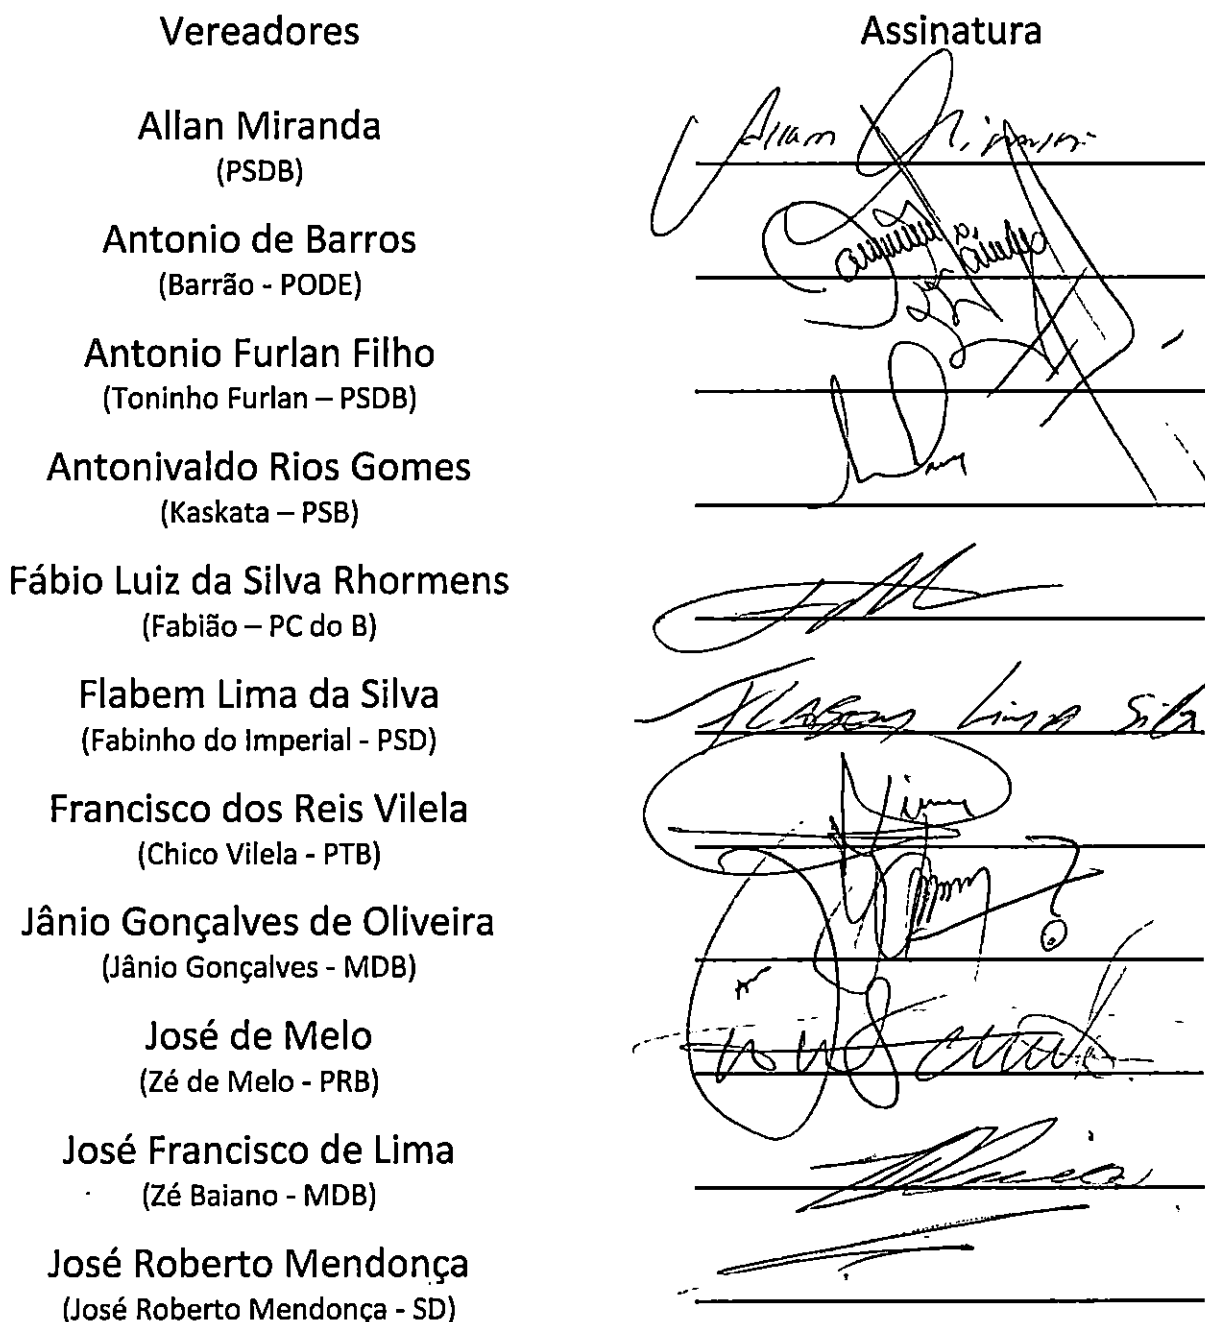 Vereadores Assinatura
Allan Miranda
(PSDB)
Allan Miranda
Antonio de Barros
(Barrão - PODE)
Antonio Furlan Filho
(Toninho Furlan – PSDB)
Antonivaldo Rios Gomes
(Kaskata – PSB)
Fábio Luiz da Silva Rhormens
(Fabião – PC do B)
Flabem Lima da Silva
(Fabinho do Imperial - PSD)
Flabem Lima Silva
Francisco dos Reis Vilela
(Chico Vilela - PTB)
Jânio Gonçalves de Oliveira
(Jânio Gonçalves - MDB)
José de Melo
(Zé de Melo - PRB)
José Francisco de Lima
(Zé Baiano - MDB)
José Roberto Mendonça
(José Roberto Mendonça - SD)